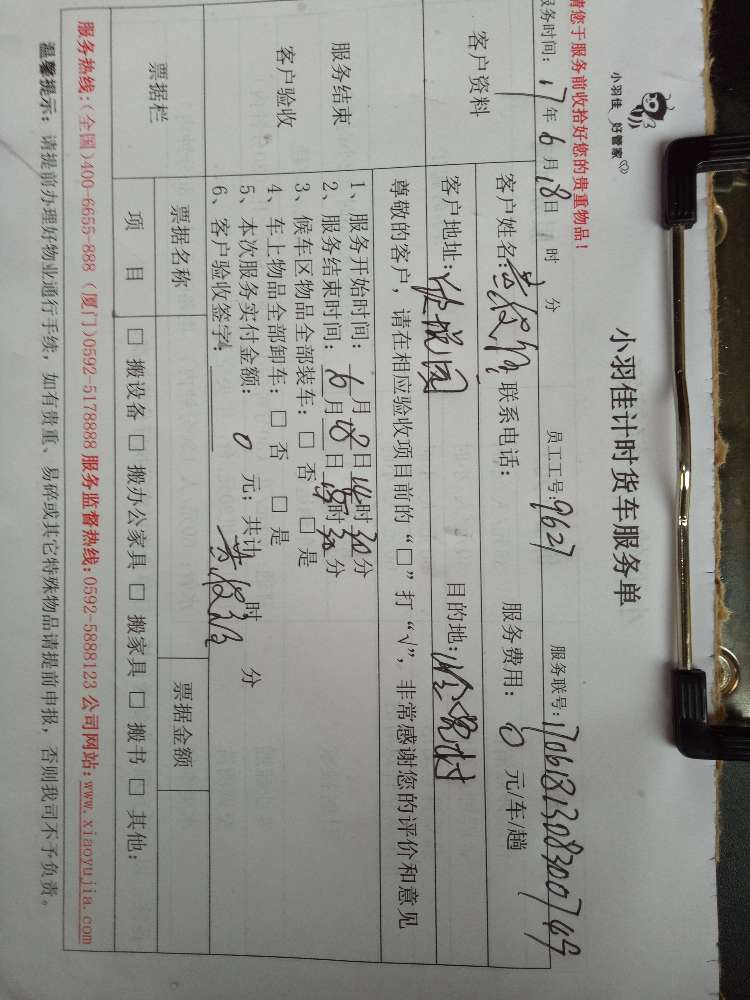 小羽佳 好管家
小羽佳计时货车服务单
请您于服务前收拾好您的贵重物品!
服务时间: 17年6月18日 时 分 员工工号: 9627 服务联号: 170618130830074
客户资料
客户姓名: 联系电话: 服务费用: 0 元/车/趟
客户地址: 目的地:
服务结束
客户验收
尊敬的客户, 请在相应验收项目前的“□”打“√”, 非常感谢您的评价和意见
1、服务开始时间: 6月18日14时30分
2、服务结束时间: 月 日 时30分
3、候车区物品全部装车: □ 否 □ 是
4、车上物品全部卸车: □ 否 □ 是
5、本次服务实付金额: 0 元; 共计 时 分
6、客户验收签字:
票据栏
票据名称 票据金额
项 目 □ 搬设备 □ 搬办公家具 □ 搬家具 □ 搬书 □ 其他:
服务热线:(全国)400-6655-888 (厦门)0592-5178888 服务监督热线:0592-5888123 公司网站:www.xiaoyujia.com
温馨提示: 请提前办理好物业通行手续, 如有贵重、易碎或其它特殊物品请提前申报, 否则我司不予负责。